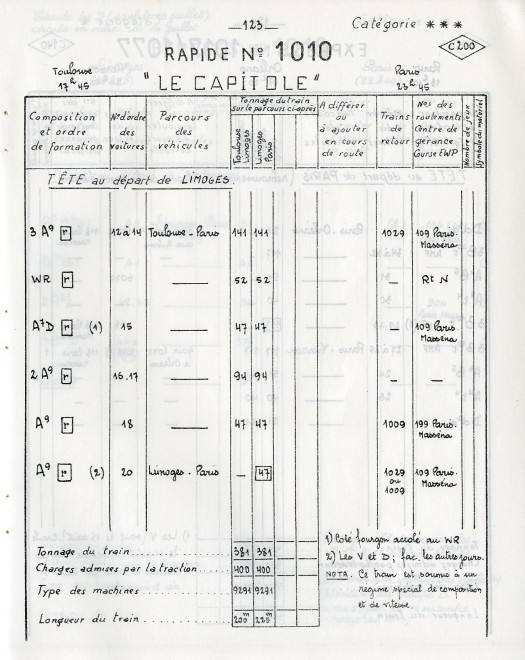 — 123 —
Catégorie ***
C200
RAPIDE Nº 1010
"LE CAPITOLE"
Toulouse
17h 45
Paris
23h 45
Composition
et ordre
de formation
Nºd'ordre
des
voitures
Parcours
des
véhicules
Tonnage du train
sur le parcours ci-après
Toulouse
Limoges
Limoges
Paris
A différer
ou
à ajouter
en cours
de route
Trains
de
retour
Nos des
roulements
Centre de
gérance
Course EWP
Nombre de jeux
Symbole du matériel
TÊTE au départ de LIMOGES
3 A9 r 12 à 14 Toulouse - Paris 141 141 1029 109 Paris.
Masséna
WR r — 52 52 — Rt N
A7D r (1) 15 — 47 47 — 109 Paris.
Masséna
2 A9 r 16.17 — 94 94 — —
A9 r 18 — 47 47 1009 199 Paris.
Masséna
A9 r (2) 20 Limoges - Paris — 47 1029
ou
1009
109 Paris.
Masséna
Tonnage du train 381 381
Charges admises par la traction 400 400
Type des machines 9291 9291
Longueur du train 200m 225m
1) Coté fourgon accolé au WR
2) Les V et D ; fac. les autres jours.
NOTA. Ce train est soumis à un
régime spécial de composition
et de vitesse.